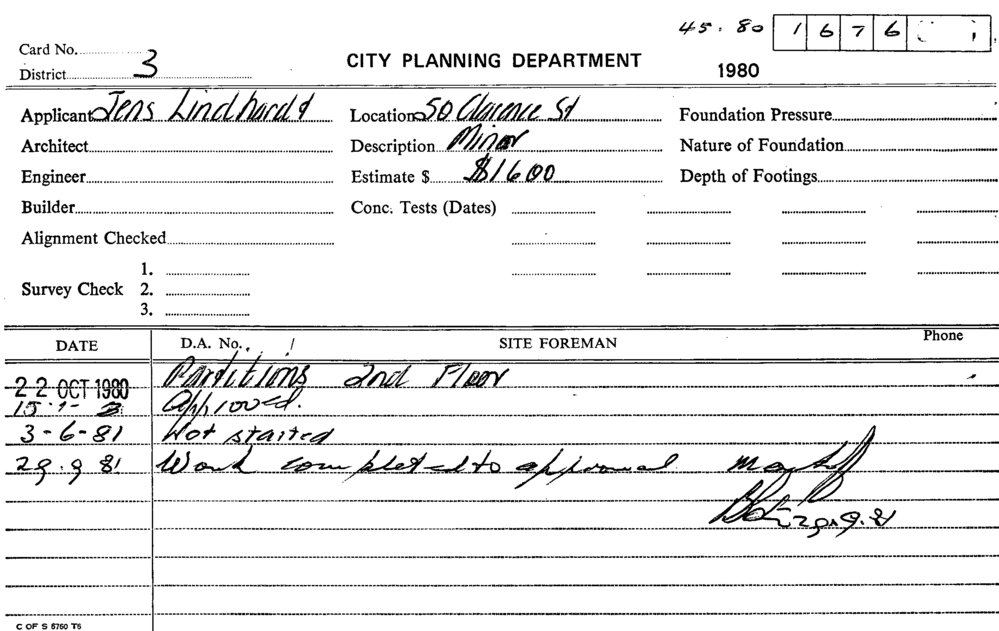 45. 80 1 6 7 6
Card No.
District 3
CITY PLANNING DEPARTMENT
1980
Applicant Jens Lindhardt Location 50 Clarence St Foundation Pressure
Architect Description Minor Nature of Foundation
Engineer Estimate $ $1600 Depth of Footings
Builder Conc. Tests (Dates)
Alignment Checked
Survey Check 1.
2.
3.
DATE D.A. No. SITE FOREMAN Phone
22 OCT 1980 Partitions 2nd Floor
Approved.
3-6-81 Not started
29.9 81 Work completed to approval
29.9.81
C OF S 5750 T6